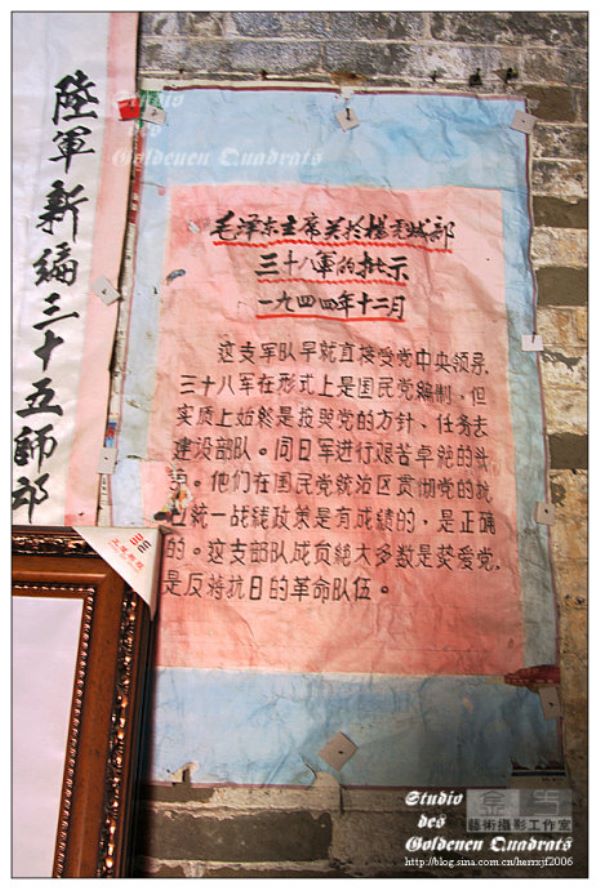 Studio
des
Goldenen Quadrats
陸軍新編三十五師部
毛泽东主席关於楊虎城部
三十八軍的批示
一九四四年十二月
这支军队早就直接受党中央领导.
三十八军在形式上是国民党编制，但
实质上始终是按照党的方针、任务去
建设部队。同日军进行艰苦卓絶的头
争。他们在国民党統治区贯彻党的抗
日統一战线政策是有成绩的，是正确
的。这支部队成员絶大多数是荧爱党,
是反蒋抗日的革命队伍。
Studio
des
Goldenen Quadrats
藝術攝影工作室
http://blog.sina.com.cn/herrxjf2006